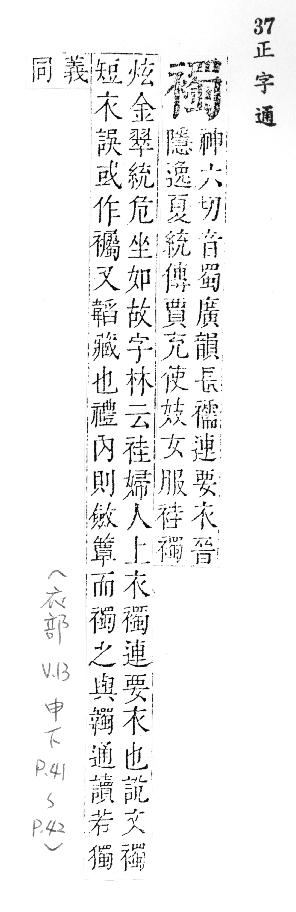 37正字通
襡
神六切音蜀廣韻長襦連要衣晉
隱逸夏統傳賈充使妓女服袿襡
炫金翠統危坐如故字林云袿婦人上衣襡連要衣也說文襡
短衣誤或作又韜藏也禮內則斂簟而襡之與韣通讀若獨
義
同
(衣部 V.13 申下 P.41~P.42)